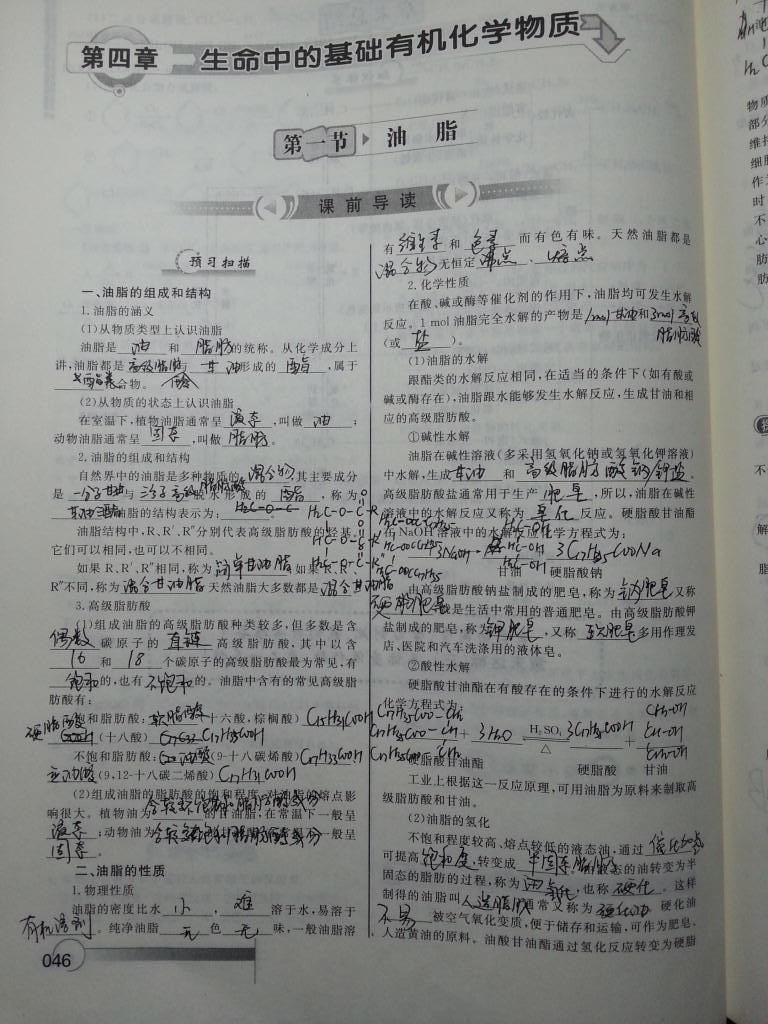 第四章 生命中的基础有机化学物质
第一节 油脂
课前导读
预习扫描
一、油脂的组成和结构
1.油脂的涵义
(1)从物质类型上认识油脂
油脂是 油 和 脂肪 的统称。从化学成分上
讲,油脂都是 高级脂肪 与 甘油 形成的 酯 ,属于
合物。
(2)从物质的状态上认识油脂
在室温下,植物油脂通常呈 液态 ,叫做 油 ;
动物油脂通常呈 固态 ,叫做 脂肪 。
2.油脂的组成和结构
自然界中的油脂是多种物质的 混合物 ,其主要成分
是 一分子甘油 与 三分子高级脂肪酸 脱水形成的 酯 ,称为
甘油三酯 油脂的结构表示为:
油脂结构中,R、R′、R″分别代表高级脂肪酸的烃基,
它们可以相同,也可以不相同。
如果R、R′、R″相同,称为 简单甘油脂 如果R、R′、
R″不同,称为 混合甘油脂 天然油脂大多数都是 混合甘油脂
3.高级脂肪酸
(1)组成油脂的高级脂肪酸种类较多,但多数是含
偶数 碳原子的 直链 高级脂肪酸,其中以含
16 和 18 个碳原子的高级脂肪酸最为常见,有
饱和 的,也有 不饱和 的。油脂中含有的常见高级脂
肪酸有:
和脂肪酸: 软脂酸 十六酸,棕榈酸) C15H31COOH
硬脂酸 (十八酸) C17H35COOH
不饱和脂肪酸: 油酸 (9-十八碳烯酸) C17H33COOH
亚油酸 (9,12-十八碳二烯酸) C17H31COOH
(2)组成油脂的脂肪酸的饱和程度,对油脂的熔点影
响很大。植物油为 含较多不饱和脂肪酸成分 的甘油酯,在常温下一般呈
液态 ;动物油为 含较多饱和脂肪酸成分
固态 。
二、油脂的性质
1.物理性质
油脂的密度比水 小 , 难 溶于水,易溶于
有机溶剂 。纯净油脂 无 色 无 味,一般油脂溶
046
有 维生素 和 色素 而有色有味。天然油脂都是
混合物 无恒定 沸点 、 熔点
2.化学性质
在酸、碱或酶等催化剂的作用下,油脂均可发生水解
反应。1 mol油脂完全水解的产物是 1mol甘油 和 3mol高级脂肪酸
(或 盐 )。
(1)油脂的水解
跟酯类的水解反应相同,在适当的条件下(如有酸或
碱或酶存在),油脂跟水能够发生水解反应,生成甘油和相
应的高级脂肪酸。
①碱性水解
油脂在碱性溶液(多采用氢氧化钠或氢氧化钾溶液)
中水解,生成 甘油 和 高级脂肪酸钠/钾盐 。
高级脂肪酸盐通常用于生产 肥皂 ,所以,油脂在碱性
溶液中的水解反应又称为 皂化 反应。硬脂酸甘油酯
在NaOH溶液中的水解反应化学方程式为:
3NaOH 3C17H35COONa
甘油 硬脂酸钠
由高级脂肪酸钠盐制成的肥皂,称为 钠肥皂 又称
硬肥皂 是生活中常用的普通肥皂。由高级脂肪酸钾
盐制成的肥皂,称为 钾肥皂 ,又称 软肥皂 多用作理发
店、医院和汽车洗涤用的液体皂。
②酸性水解
硬脂酸甘油酯在有酸存在的条件下进行的水解反应
化学方程式为:
C17H35COO-CH2 CH2-OH
C17H35COO-CH + 3H2O H2SO4 △ 3C17H35COOH + CH-OH
C17H35COO-CH2 CH2-OH
硬脂酸甘油酯 硬脂酸 甘油
工业上根据这一反应原理,可用油脂为原料来制取高
级脂肪酸和甘油。
(2)油脂的氢化
不饱和程度较高、熔点较低的液态油,通过 催化加氢
可提高 饱和度 ,转变成 半固态脂肪 态的油转变为半
固态的脂肪的过程,称为 油氢化 ,也称 硬化 。这样
制得的油脂叫 人造脂肪 通常又称为 硬化油 硬化油
不易 被空气氧化变质,便于储存和运输,可作为肥皂、
人造黄油的原料。油酸甘油酯通过氢化反应转变为硬脂